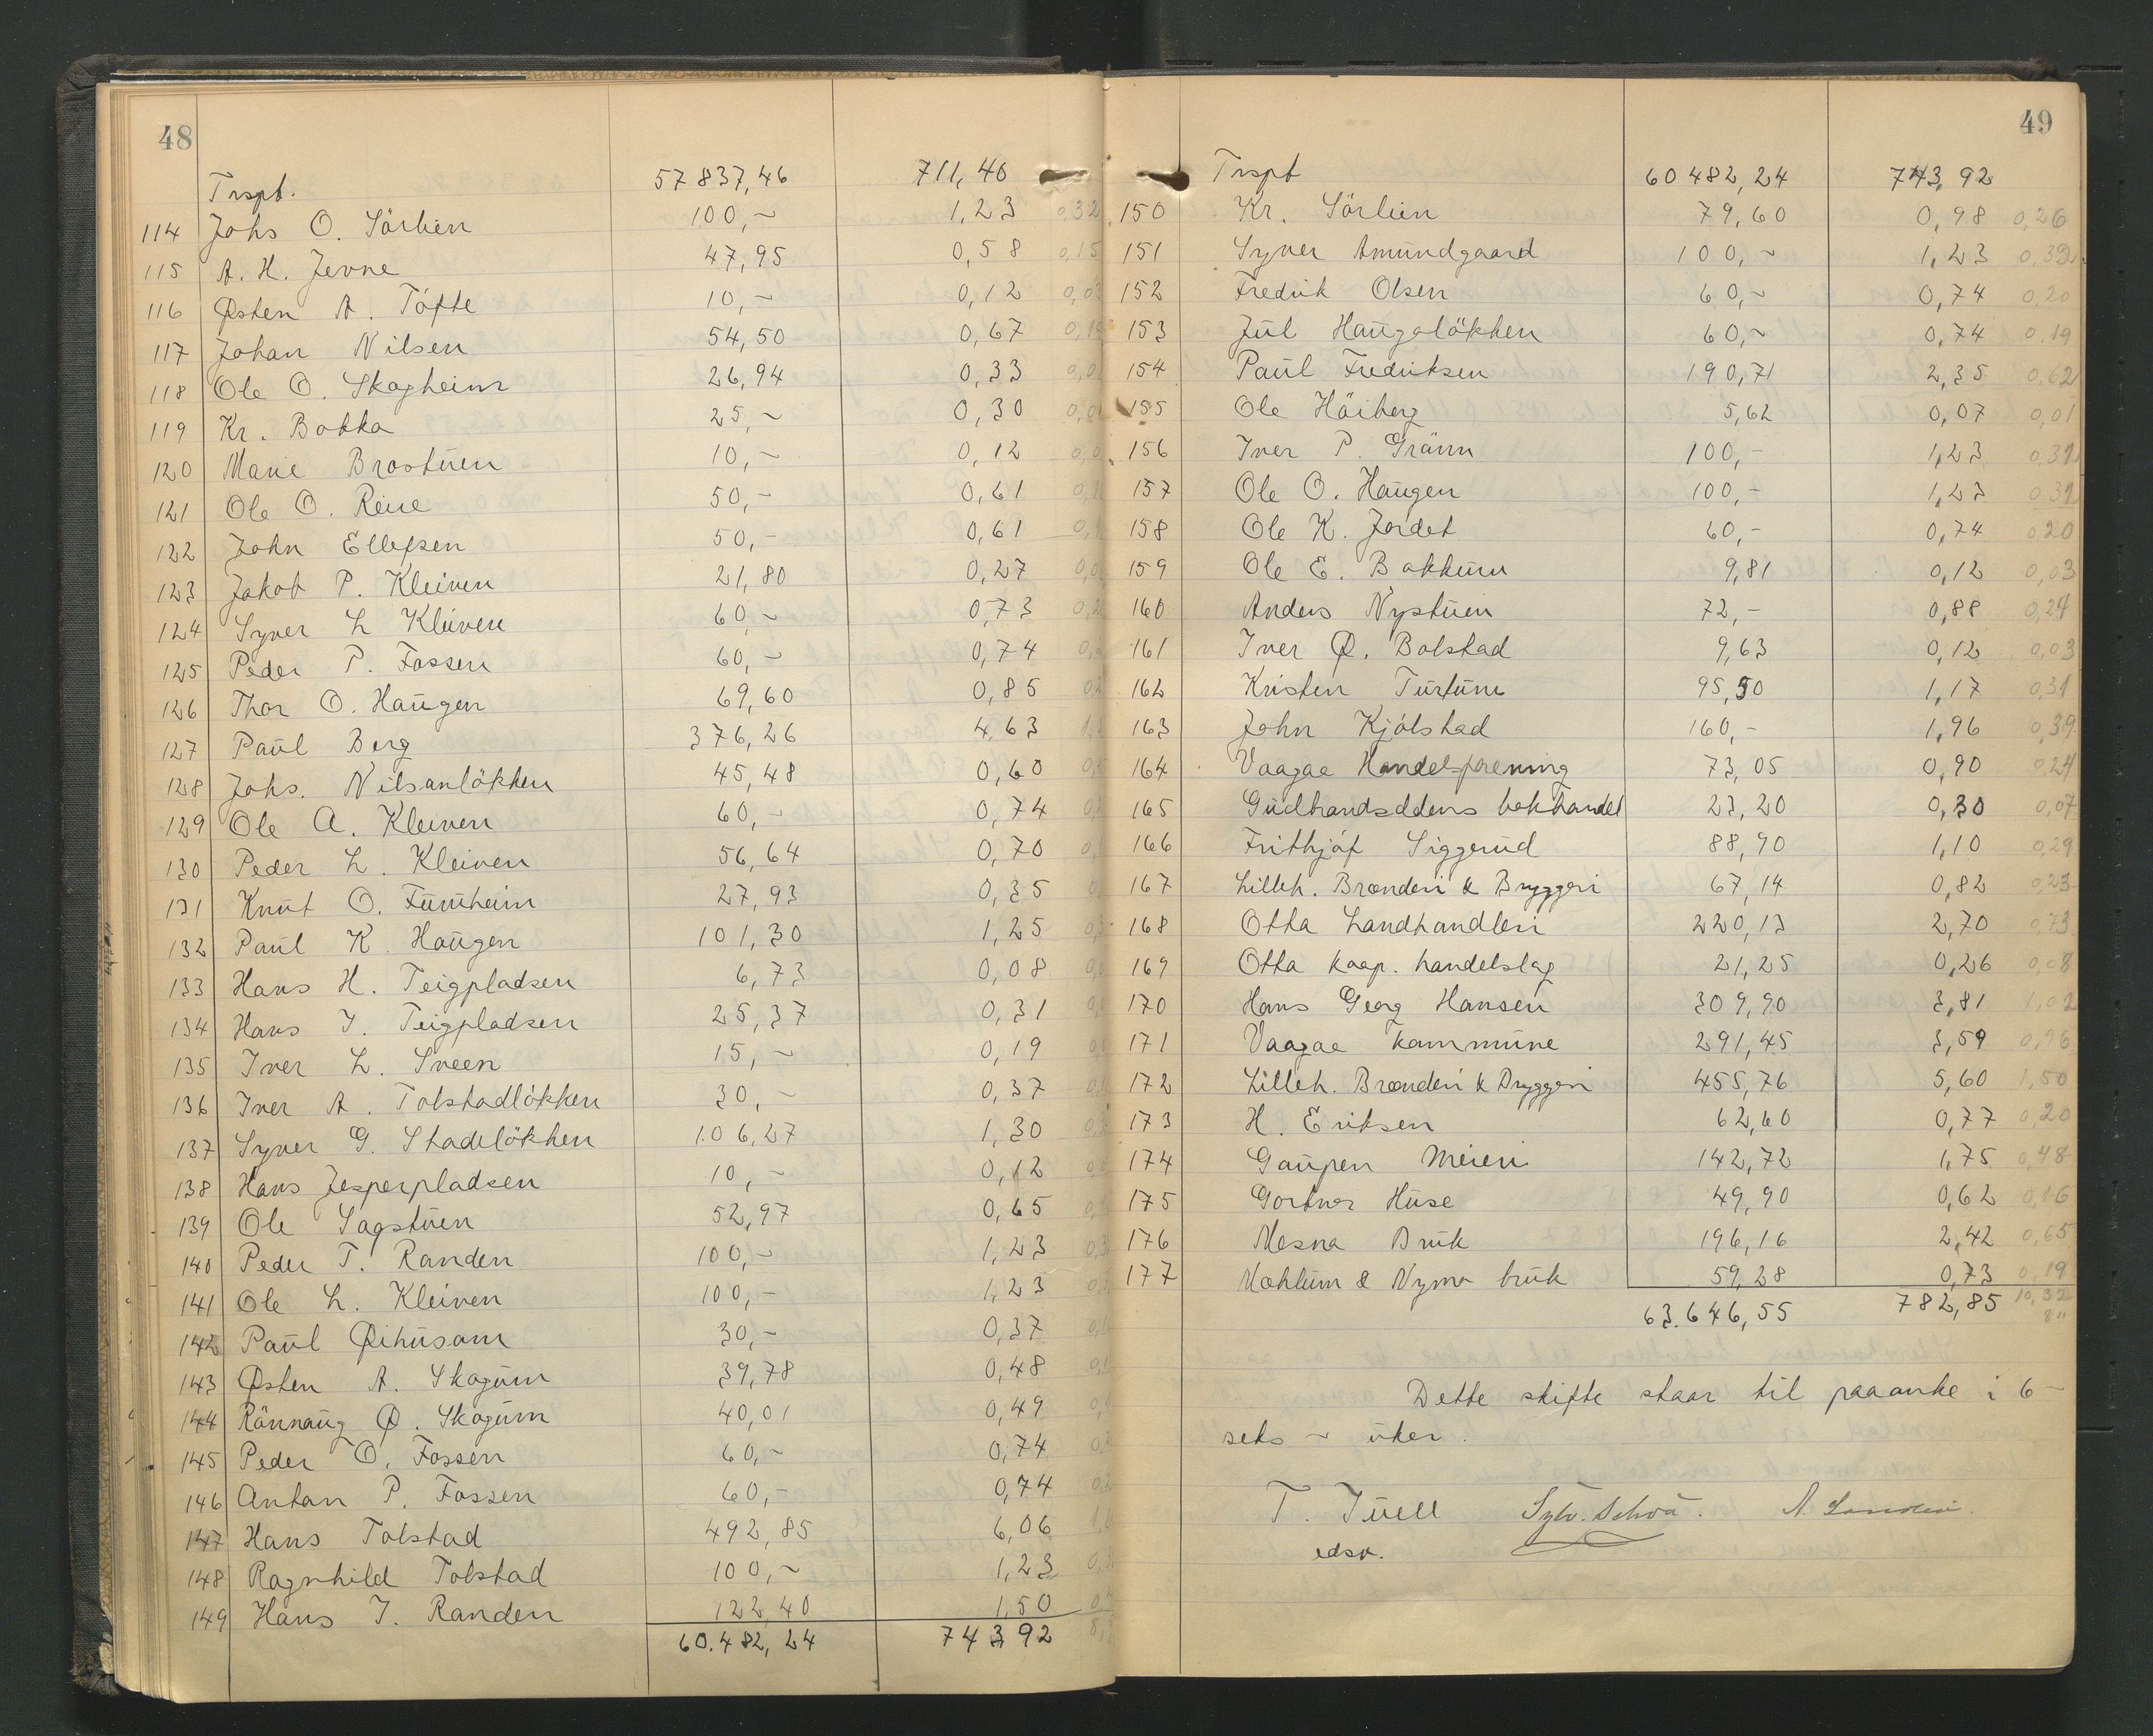 48
Trspt. 57 837,46 711,40
114 Johs O. Sörlien 100,~ 1,23 0,32
115 A. H. Jevne 47,95 0,58 0,15
116 Østen A. Töfte 10,~ 0,12 0,03
117 Johan Nilsen 54,50 0,67
118 Ole O. Skogheim 26,94 0,33
119 Kr. Bakka 25,~ 0,30
120 Marie Brostuen 10,~ 0,12
121 Ole O. Reire 50,- 0,61
122 John Ellefsen 50,- 0,61
123 Jakob P. Kleiven 21,80 0,27
124 Syver L Kleiven 60,~ 0,73
125 Peder P. Fossen 60,~ 0,74
126 Thor O. Haugen 69,60 0,85
127 Paul Berg 376,26 4,63
128 Johs. Nilsanlökken 45,48 0,60
129 Ole A. Kleiven 60,- 0,74
130 Peder L. Kleiven 56,64 0,70
131 Knut O. Furuheim 27,93 0,35
132 Paul K. Haugen 101,30 1,25
133 Hans H. Teigpladsen 6,73 0,08
134 Hans J. Teigpladsen 25,37 0,31
135 Iver L. Sveen 15,~ 0,19
136 Iver A. Tolstadlökken 30,~ 0,37
137 Syver G. Stadelökken 106,27 1,30
138 Hans Jesperpladsen 10,~ 0,12
139 Ole Sagstuen 52,97 0,65
140 Peder T. Randen 100,- 1,23
141 Ole L. Kleiven 100,- 1,23
142 Paul Øihusom 30,- 0,37
143 Østen A. Skogum 39,78 0,48
144 Rönnaug Ø. Skogum 40,01 0,49
145 Peder O. Fossen 60,~ 0,74
146 Anton P. Fossen 60,- 0,74
147 Hans Tolstad 492,85 6,06
148 Ragnhild Tolstad 100,~ 1,23
149 Hans J. Randen 122,40 1,50
60.482,24 743,92
49
Trspt 60 482,24 743,92
150 Kr. Sörlien 79,60 0,98 0,26
151 Syver Amundgaard 100,~ 1,23 0,32
152 Fredrik Olsen 60,~ 0,74 0,20
153 Jul Haugalökken 60,~ 0,74 0,19
154 Paul Fredriksen 190,71 2,35 0,62
155 Ole Höiberg 5,62 0,07 0,01
156 Iver P. Gränn 100,- 1,23 0,31
157 Ole O. Haugen 100,- 1,23 0,31
158 Ole K. Jordet 60,- 0,74 0,20
159 Ole E. Bakkum 9,81 0,12 0,03
160 Anders Nystuen 72,- 0,88 0,24
161 Iver Ø. Bolstad 9,63 0,12 0,03
162 Kristen Turtum 95,50 1,17 0,31
163 John Kjölstad 160,- 1,96 0,39
164 Vaagaa Handelsforening 73,05 0,90 0,24
165 Gudbrandsdølens bokhandel 23,20 0,30 0,07
166 Frithjöf Siggerud 88,90 1,10 0,29
167 Lilleh. Brænderi & Bryggeri 67,14 0,82 0,23
168 Otta Landhandleri 220,13 2,70 0,73
169 Otta koop. handelslag 21,25 0,26 0,08
170 Hans Georg Hansen 309,90 3,81 1,02
171 Vaagaa kommune 291,45 3,59 0,96
172 Lilleh. Brænderi & Bryggeri 455,76 5,60 1,50
173 H. Eriksen 62,60 0,77 0,20
174 Gaupen Meieri 142,72 1,75 0,48
175 Gartner Huse 49,90 0,62 0,16
176 Mesna Bruk 196,16 2,42 0,65
177 Mæhlum & Nyma bruk 59,28 0,73 0,19
63.646,55 782,85 10,32
8"
Dette skifte staar til paaanke i 6 -
seks ~ uker.
T. Juell
edsv.